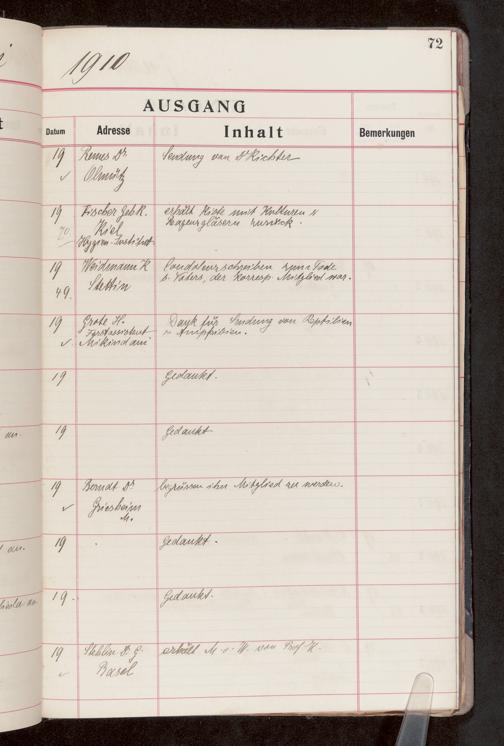 72
1910
AUSGANG
Datum Adresse Inhalt Bemerkungen
19 Remes Dr. Sendung von Dr Richter
Olmütz
19 Fischer Geh. R. erhält Kiste mit Kulturen u
70 Kiel Reagenzgläsern zurück.
Hygien. Institut
19 Weidmann K Condolenzschreiben zum Tode
s. Vaters, der korresp. Mitglied war.
49. Stettin
19 Grote H. Dank für Sendung von Reptilien
Forstassistent u Amphibien.
Mikindani
19 Gedankt.
19 Gedankt
an.
19 Berndt Dr begrüssen ihn Mitglied zu werden.
Griesheim
M.
19 Gedankt.
an.
19. Gedankt.
19 Stehlin Dr. G. erhält M. v. W. von Prof. K.
Basel